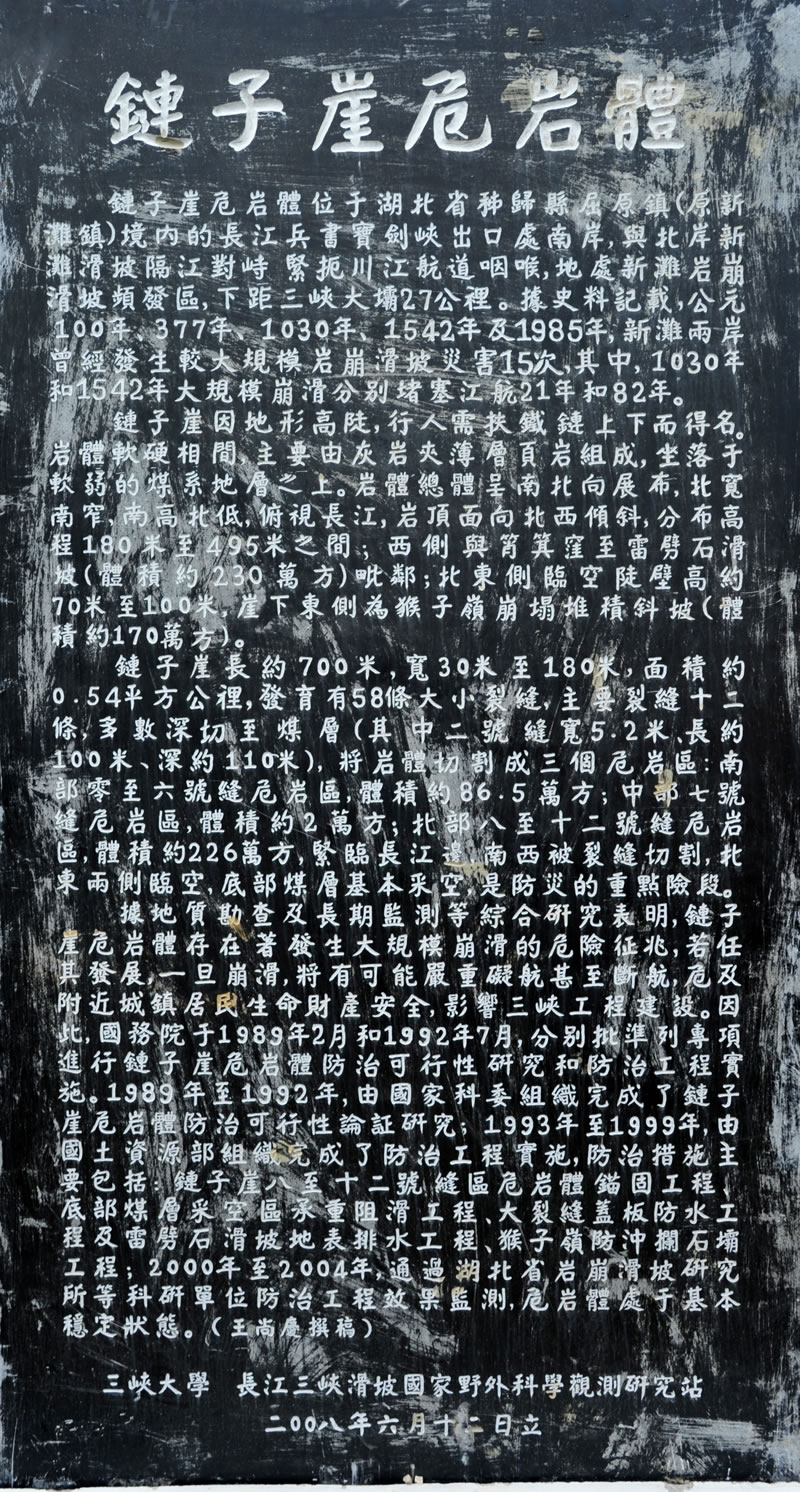 鏈子崖危岩體
鏈子崖危岩體位于湖北省秭歸縣屈原鎮(原新
灘鎮)境内的長江兵書寶劍峽出口處南岸,與北岸新
灘滑坡隔江對峙 緊扼川江航道咽喉,地處新灘岩崩
滑坡頻發區,下距三峽大壩27公裡。據史料記載,公元
100年、377年、1030年、1542年及1985年,新灘兩岸
曾經發生較大規模岩崩滑坡災害15次,其中,1030年
和1542年大規模崩滑分别堵塞江航21年和82年。
鏈子崖因地形高陡,行人需扶鐵鏈上下而得名。
岩體軟硬相間 主要由灰岩夾薄層頁岩組成,坐落于
軟弱的煤系地層之上。岩體總體呈南北向展布,北寬
南窄,南高北低,俯視長江,岩頂面向北西傾斜,分布高
程180米至495米之間;西側與筲箕窪至雷劈石滑
坡(體積約230萬方)毗鄰;北東側臨空陡壁高約
70米至100米 崖下東側為猴子嶺崩塌堆積斜坡(體
積約170萬方)。
鏈子崖長約700米,寬30米至180米,面積約
0.54平方公裡,發育有58條大小裂縫,主要裂縫十二
條,多數深切至煤層(其中二號縫寬5.2米、長約
100米、深約110米),將岩體切割成三個危岩區:南
部零至六號縫危岩區,體積約86.5萬方;中部七號
縫危岩區,體積約2萬方;北部八至十二號縫危岩
區,體積約226萬方,緊臨長江邊 南西被裂縫切割,北
東兩側臨空,底部煤層基本采空 是防災的重點險段。
據地質勘查及長期監測等綜合研究表明,鏈子
崖危岩體存在著發生大規模崩滑的危險征兆,若任
其發展,一旦崩滑,將有可能嚴重礙航甚至斷航,危及
附近城鎮居民生命財產安全,影響三峽工程建設。因
此,國務院于1989年2月和1992年7月,分别批準列專項
進行鏈子崖危岩體防治可行性研究和防治工程實
施。1989年至1992年,由國家科委組織完成了鏈子
崖危岩體防治可行性論証研究;1993年至1999年,由
國土資源部組織完成了防治工程實施,防治措施主
要包括:鏈子崖八至十二號縫區危岩體錨固工程、
底部煤層采空區承重阻滑工程、大裂縫蓋板防水工
程及雷劈石滑坡地表排水工程、猴子嶺防沖攔石壩
工程;2000年至2004年,通過湖北省岩崩滑坡研究
所等科研單位防治工程效果監測,危岩體處于基本
穩定狀態。(王尚慶撰稿)
三峽大學 長江三峽滑坡國家野外科學觀測研究站
二00八年六月十二日立